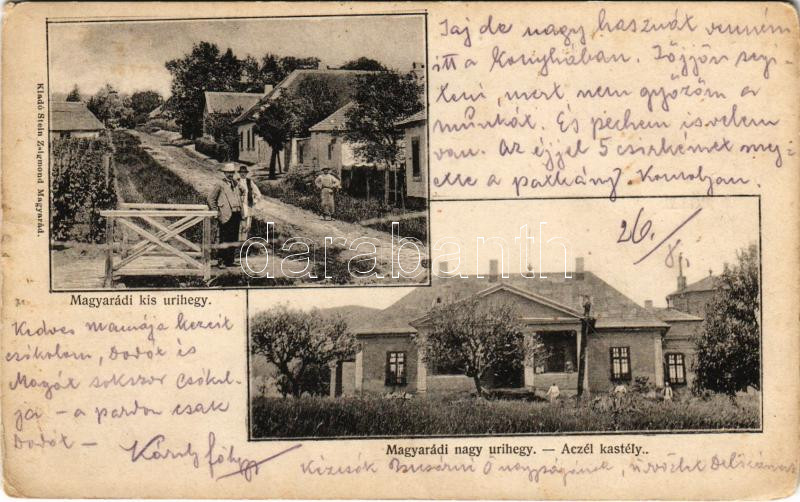 Jaj de nagy hasznát venném
itt a Konyhában. Jöjjön segi-
teni, mert nem győzöm a
munkát. És pechem is velem
van. Az éjjel 5 csirkémet meg-
ette a patkány. Komoljan.
26/
Kiadó Stein Zsigmond Magyarád.
darabanth
Magyarádi kis urihegy.
Kedves mamája kezeit
csókolom, Dodót és
Magát sokszor csókol-
ja - a pardon csak
Dodót -
Károly
Magyarádi nagy urihegy. — Aczél kastély..
Ő nagyságának, üdvözlet